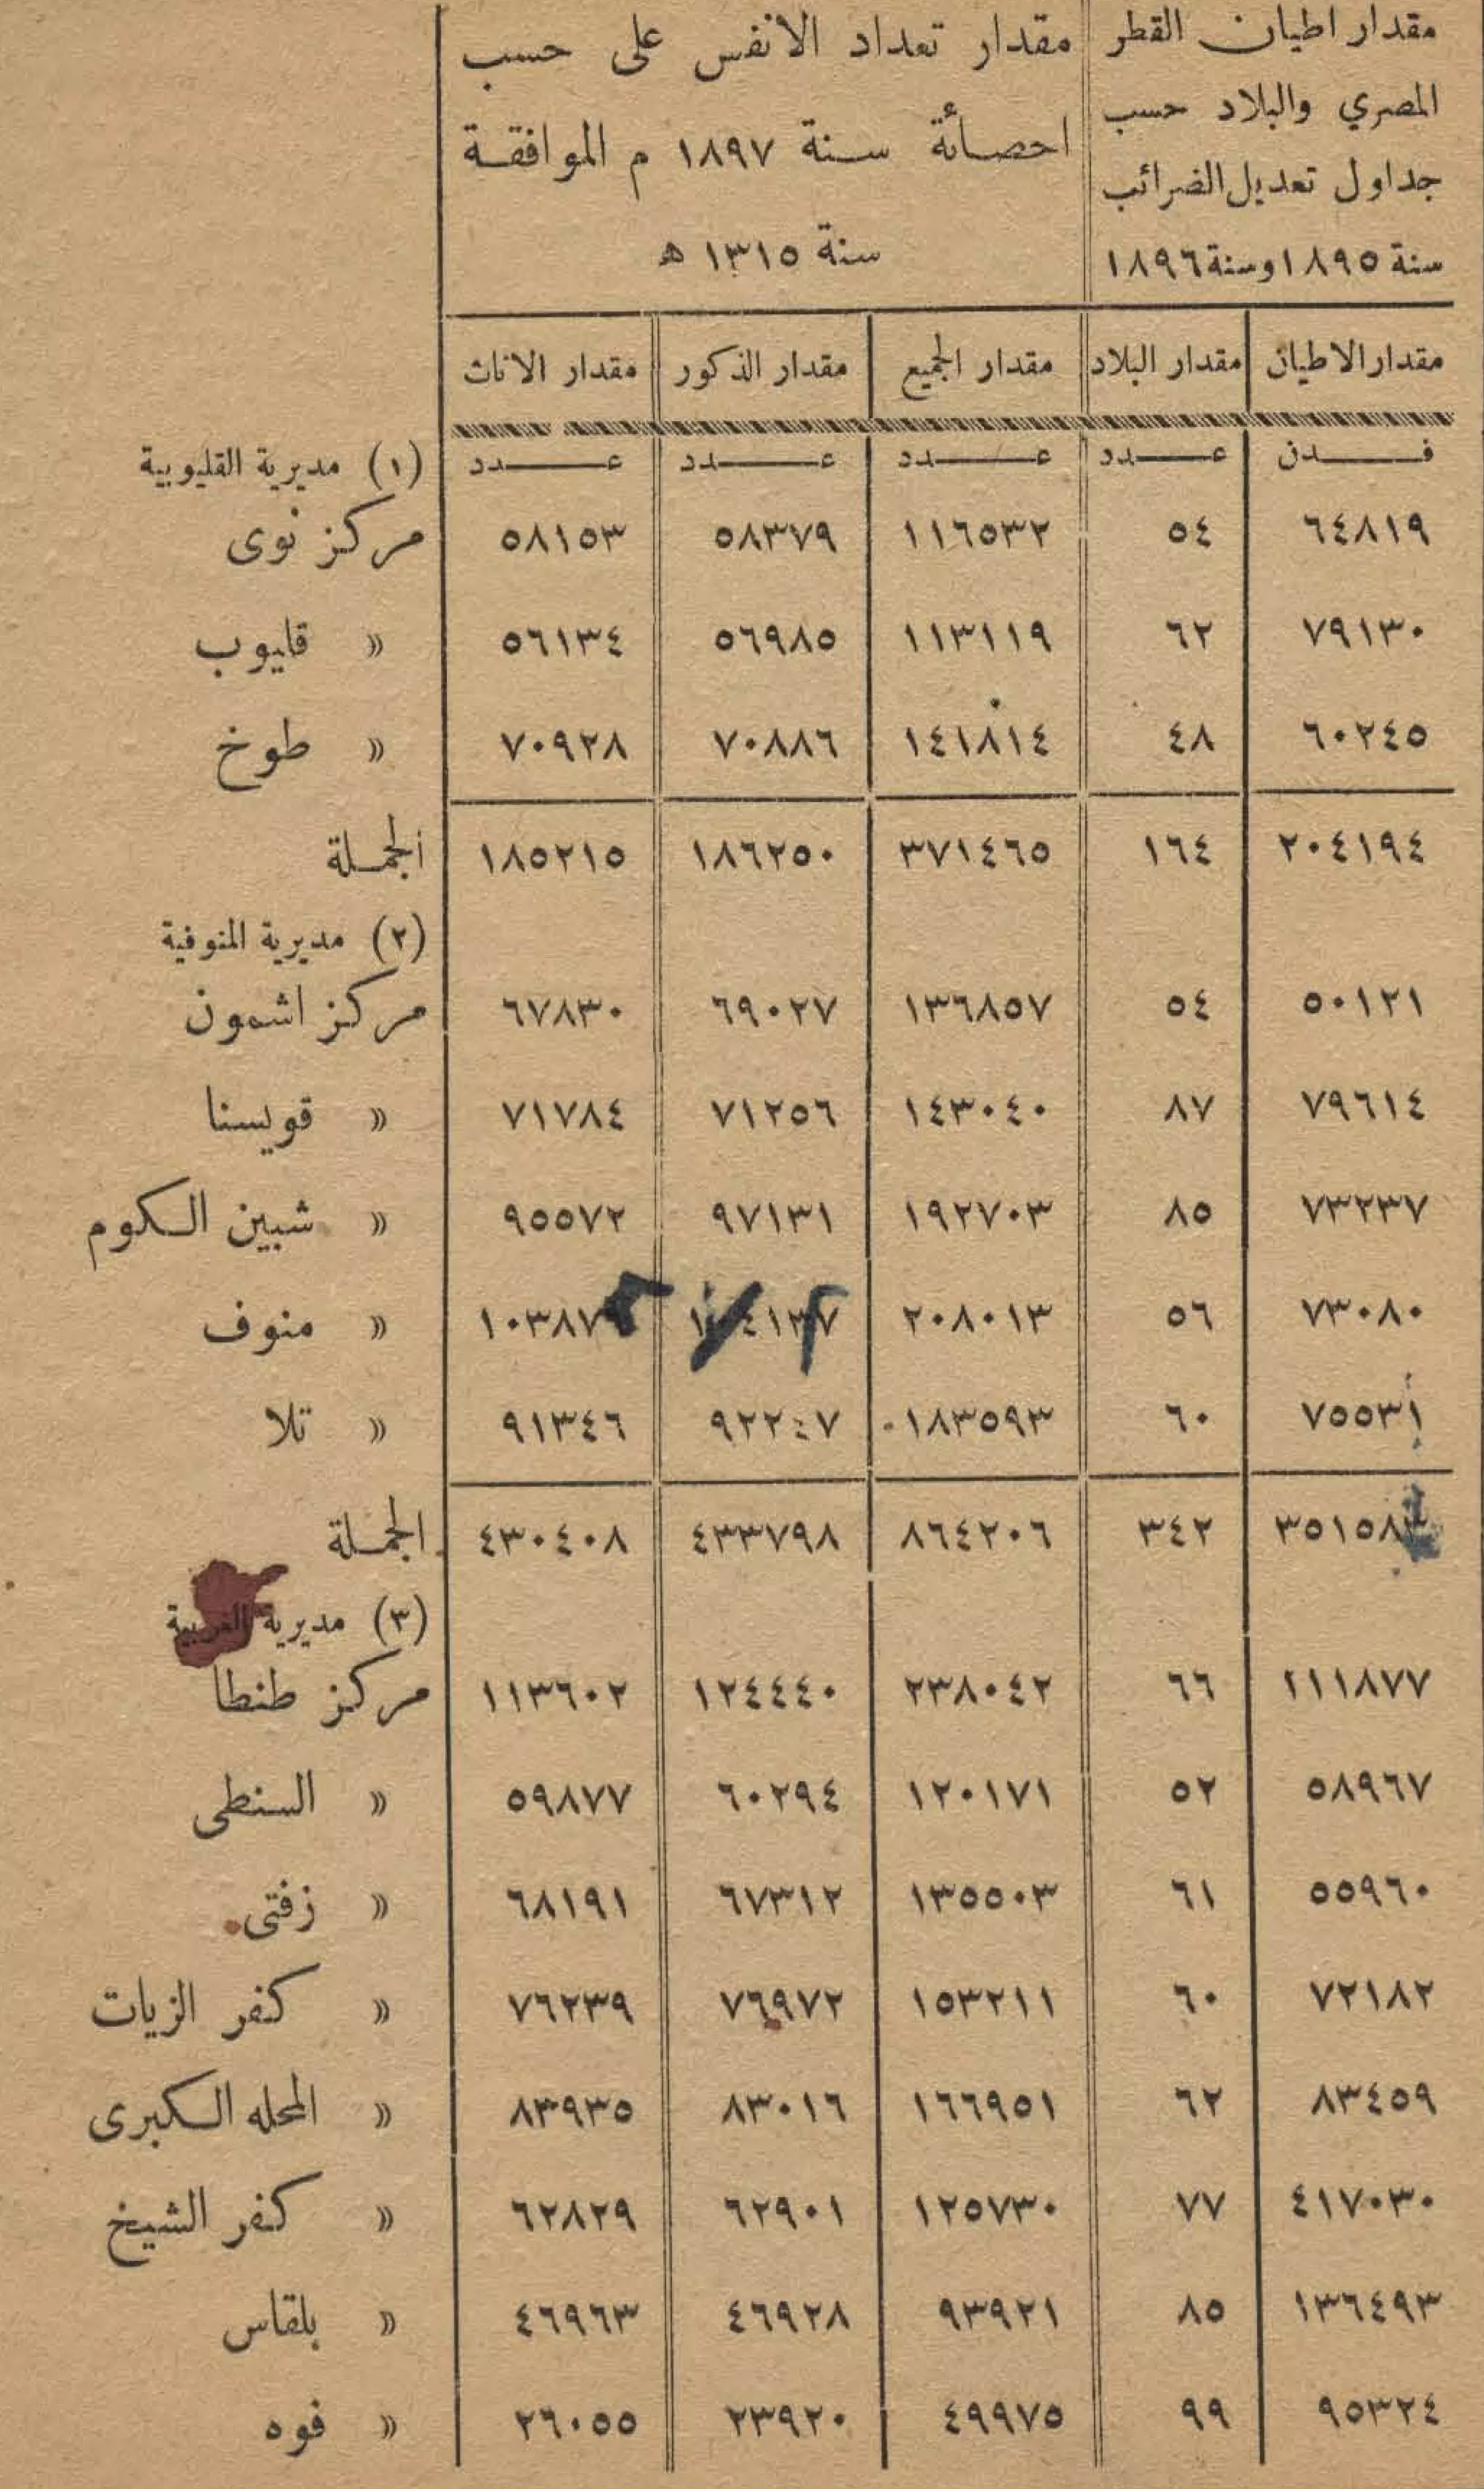 مقدار اطيان القطر
المصري والبلاد حسب
جداول تعديل الضرائب
سنة ١٨٩٥ وسنة ١٨٩٦
مقدار تعداد الانفس على حسب
احصائة سنة ١٨٩٧ م الموافقة
سنة ١٣١٥ ه
مقدار الاطيان مقدار البلاد مقدار الجميع مقدار الذكور مقدار الاناث
فدن عدد عدد عدد عدد (١) مديرية القليوبية
٦٤٨١٩ ٥٤ ١١٦٥٣٢ ٥٨٣٧٩ ٥٨١٥٣ مركز نوى
٧٩١٣٠ ٦٢ ١١٣١١٩ ٥٦٩٨٥ ٥٦١٣٤ » قليوب
٦٠٢٤٥ ٤٨ ١٤١٨١٤ ٧٠٨٨٦ ٧٠٩٢٨ » طوخ
٢٠٤١٩٤ ١٦٤ ٣٧١٤٦٥ ١٨٦٢٥٠ ١٨٥٢١٥ الجملة
(٢) مديرية المنوفية
٥٠١٢١ ٥٤ ١٣٦٨٥٧ ٦٩٠٢٧ ٦٧٨٣٠ مركز اشمون
٧٩٦١٤ ٨٧ ١٤٣٠٤٠ ٧١٢٥٦ ٧١٧٨٤ » قويسنا
٧٣٢٣٧ ٨٥ ١٩٢٧٠٣ ٩٧١٣١ ٩٥٥٧٢ » شبين الكوم
٧٣٠٨٠ ٥٦ ٢٠٨٠١٣ ١٠٤١٣٧ ١٠٣٨٧٦ » منوف
٧٥٥٣١ ٦٠ ١٨٣٥٩٣ ٩٢٢٤٧ ٩١٣٤٦ » تلا
٣٥١٥٨٣ ٣٤٢ ٨٦٤٢٠٦ ٤٣٣٧٩٨ ٤٣٠٤٠٨ الجملة
(٣) مديرية الغربية
١١١٨٧٧ ٦٦ ٢٣٨٠٤٢ ١٢٤٤٤٠ ١١٣٦٠٢ مركز طنطا
٥٨٩٦٧ ٥٢ ١٢٠١٧١ ٦٠٢٩٤ ٥٩٨٧٧ » السنطى
٥٥٩٦٠ ٦١ ١٣٥٥٠٣ ٦٧٣١٢ ٦٨١٩١ » زفتى
٧٢١٨٢ ٦٠ ١٥٣٢١١ ٧٦٩٧٢ ٧٦٢٣٩ » كفر الزيات
٨٣٤٥٩ ٦٢ ١٦٦٩٥١ ٨٣٠١٦ ٨٣٩٣٥ » المحله الكبرى
٤١٧٠٣٠ ٧٧ ١٢٥٧٣٠ ٦٢٩٠١ ٦٢٨٢٩ » كفر الشيخ
١٣٦٤٩٣ ٨٥ ٩٣٩٢١ ٤٦٩٢٨ ٤٦٩٦٣ » بلقاس
٩٥٣٢٤ ٩٩ ٤٩٩٧٥ ٢٣٩٢٠ ٢٦٠٥٥ » فوه